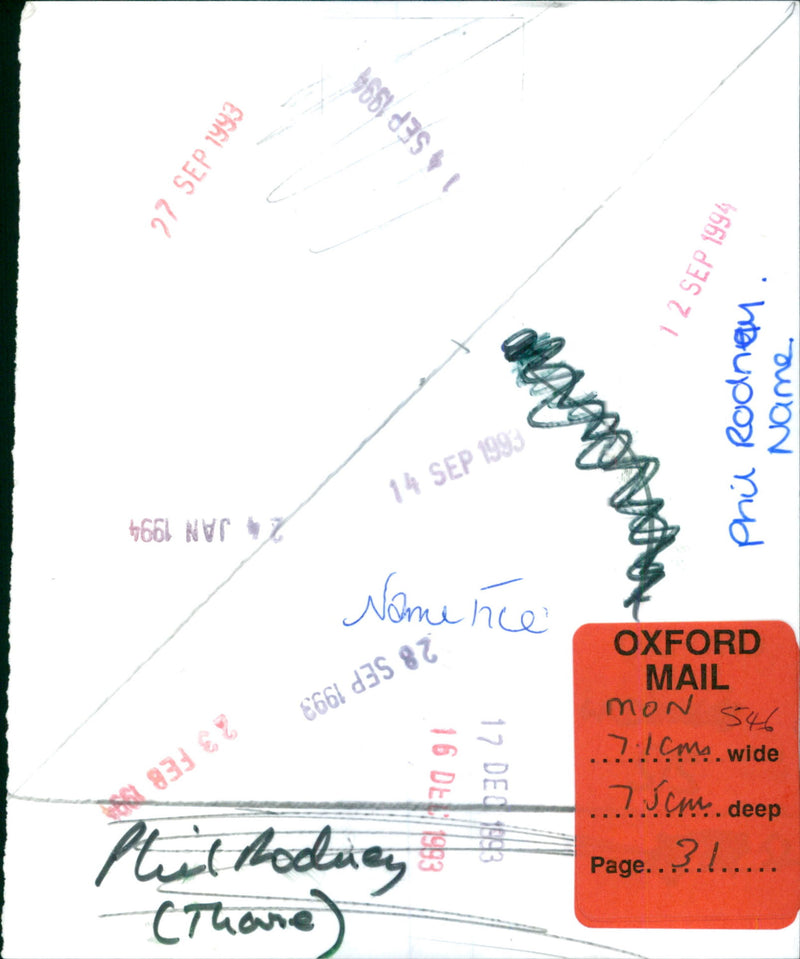 27 SEP 1993
14 SEP 1994
12 SEP 1994
Phil Rodney.
Name.
14 SEP 1993
24 JAN 1994
Name File
28 SEP 1993
23 FEB 1994
16 DEC 1993
17 DEC 1993
OXFORD
MAIL
MON 546
7.1cms wide
7.5cms deep
Page 31
Phil Rodney
(Thame)